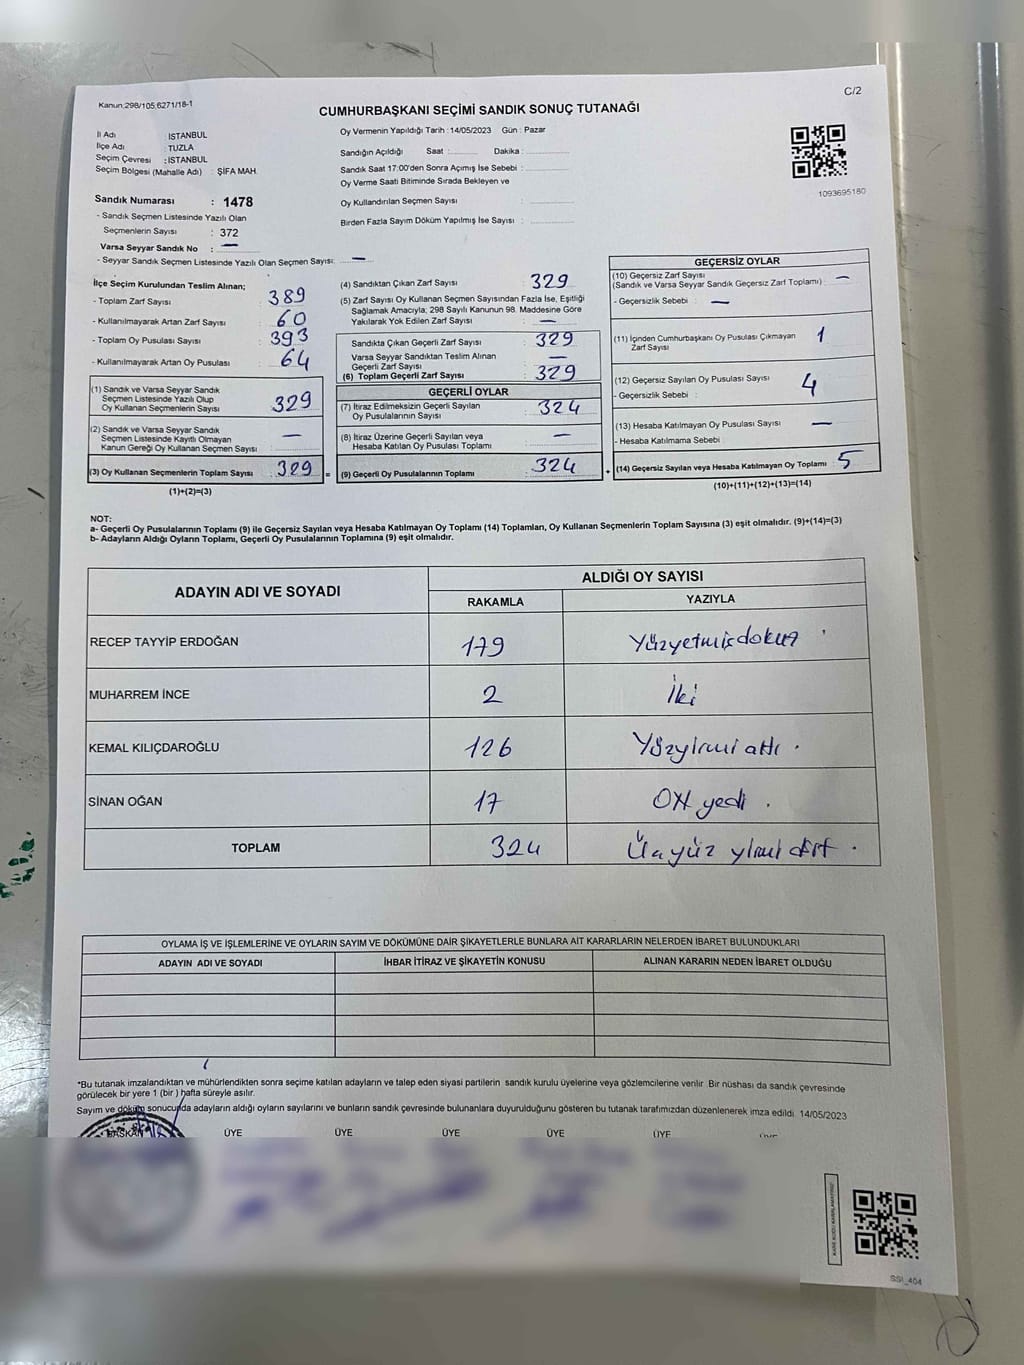 Kanun;298/105,6271/18-1
C/2
CUMHURBAŞKANI SEÇİMİ SANDIK SONUÇ TUTANAĞI
İl Adı : İSTANBUL
İlçe Adı : TUZLA
Seçim Çevresi : İSTANBUL
Seçim Bölgesi (Mahalle Adı) : ŞİFA MAH.
Sandık Numarası : 1478
- Sandık Seçmen Listesinde Yazılı Olan
Seçmenlerin Sayısı : 372
Varsa Seyyar Sandık No : —
- Seyyar Sandık Seçmen Listesinde Yazılı Olan Seçmen Sayısı: —
Oy Vermenin Yapıldığı Tarih : 14/05/2023 Gün : Pazar
Sandığın Açıldığı Saat : Dakika :
Sandık Saat 17:00'den Sonra Açımış İse Sebebi :
Oy Verme Saati Bitiminde Sırada Bekleyen ve
Oy Kullandırılan Seçmen Sayısı :
Birden Fazla Sayım Döküm Yapılmış İse Sayısı :
1093695180
İlçe Seçim Kurulundan Teslim Alınan;
- Toplam Zarf Sayısı : 389
- Kullanılmayarak Artan Zarf Sayısı : 60
- Toplam Oy Pusulası Sayısı : 393
- Kullanılmayarak Artan Oy Pusulası : 64
(1) Sandık ve Varsa Seyyar Sandık
Seçmen Listesinde Yazılı Olup
Oy Kullanan Seçmenlerin Sayısı : 329
(2) Sandık ve Varsa Seyyar Sandık
Seçmen Listesinde Kayıtlı Olmayan
Kanun Gereği Oy Kullanan Seçmen Sayısı : —
(3) Oy Kullanan Seçmenlerin Toplam Sayısı : 329 =
(1)+(2)=(3)
(4) Sandıktan Çıkan Zarf Sayısı : 329
(5) Zarf Sayısı Oy Kullanan Seçmen Sayısından Fazla İse, Eşitliği
Sağlamak Amacıyla; 298 Sayılı Kanunun 98. Maddesine Göre
Yakılarak Yok Edilen Zarf Sayısı : —
Sandıkta Çıkan Geçerli Zarf Sayısı : 329
Varsa Seyyar Sandıktan Teslim Alınan
Geçerli Zarf Sayısı : —
(6) Toplam Geçerli Zarf Sayısı : 329
GEÇERLİ OYLAR
(7) İtiraz Edilmeksizin Geçerli Sayılan
Oy Pusulalarının Sayısı : 324
(8) İtiraz Üzerine Geçerli Sayılan veya
Hesaba Katılan Oy Pusulası Toplamı : —
(9) Geçerli Oy Pusulalarının Toplamı : 324 +
GEÇERSİZ OYLAR
(10) Geçersiz Zarf Sayısı
(Sandık ve Varsa Seyyar Sandık Geçersiz Zarf Toplamı) : —
- Geçersizlik Sebebi : —
(11) İçinden Cumhurbaşkanı Oy Pusulası Çıkmayan
Zarf Sayısı : 1
(12) Geçersiz Sayılan Oy Pusulası Sayısı : 4
- Geçersizlik Sebebi :
(13) Hesaba Katılmayan Oy Pusulası Sayısı : —
- Hesaba Katılmama Sebebi :
(14) Geçersiz Sayılan veya Hesaba Katılmayan Oy Toplamı : 5
(10)+(11)+(12)+(13)=(14)
NOT:
a- Geçerli Oy Pusulalarının Toplamı (9) ile Geçersiz Sayılan veya Hesaba Katılmayan Oy Toplamı (14) Toplamları, Oy Kullanan Seçmenlerin Toplam Sayısına (3) eşit olmalıdır. (9)+(14)=(3)
b- Adayların Aldığı Oyların Toplamı, Geçerli Oy Pusulalarının Toplamına (9) eşit olmalıdır.
ADAYIN ADI VE SOYADI
ALDIĞI OY SAYISI
RAKAMLA YAZIYLA
RECEP TAYYİP ERDOĞAN 179 Yüzyetmişdokuz
MUHARREM İNCE 2 İki
KEMAL KILIÇDAROĞLU 126 Yüzyirmi altı .
SİNAN OĞAN 17 On yedi .
TOPLAM 324 Üçyüz yirmi dört .
OYLAMA İŞ VE İŞLEMLERİNE VE OYLARIN SAYIM VE DÖKÜMÜNE DAİR ŞİKAYETLERLE BUNLARA AİT KARARLARIN NELERDEN İBARET BULUNDUKLARI
ADAYIN ADI VE SOYADI İHBAR İTİRAZ VE ŞİKAYETİN KONUSU ALINAN KARARIN NEDEN İBARET OLDUĞU
*Bu tutanak imzalandıktan ve mühürlendikten sonra seçime katılan adayların ve talep eden siyasi partilerin sandık kurulu üyelerine veya gözlemcilerine verilir. Bir nüshası da sandık çevresinde
görülecek bir yere 1 (bir ) hafta süreyle asılır.
Sayım ve döküm sonucunda adayların aldığı oyların sayılarını ve bunların sandık çevresinde bulunanlara duyurulduğunu gösteren bu tutanak tarafımızdan düzenlenerek imza edildi. 14/05/2023
BAŞKAN ÜYE ÜYE ÜYE ÜYE ÜYE ÜYE
SSI_404